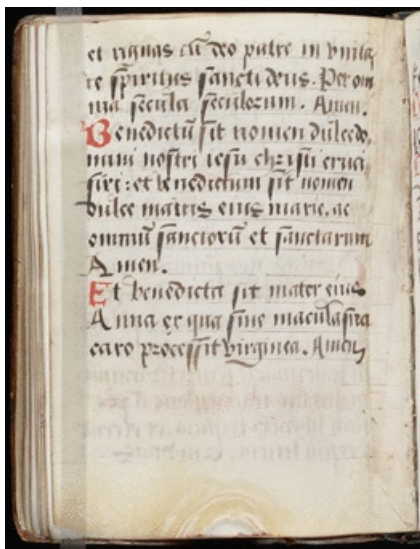 et regnas cū deo patre in vnita
te spiritus sancti deus. Per om
nia secula seculorum. Amen.
Benedictū sit nomen dulce do,
mini nostri iesu christi cruci
fixi: et benedictum sit nomen
dulce matris eius marie. ac
omniū sanctorū et sanctarum
Amen.
Et benedicta sit mater eius
Anna ex qua sine macula tua
caro processit virginea. Amen